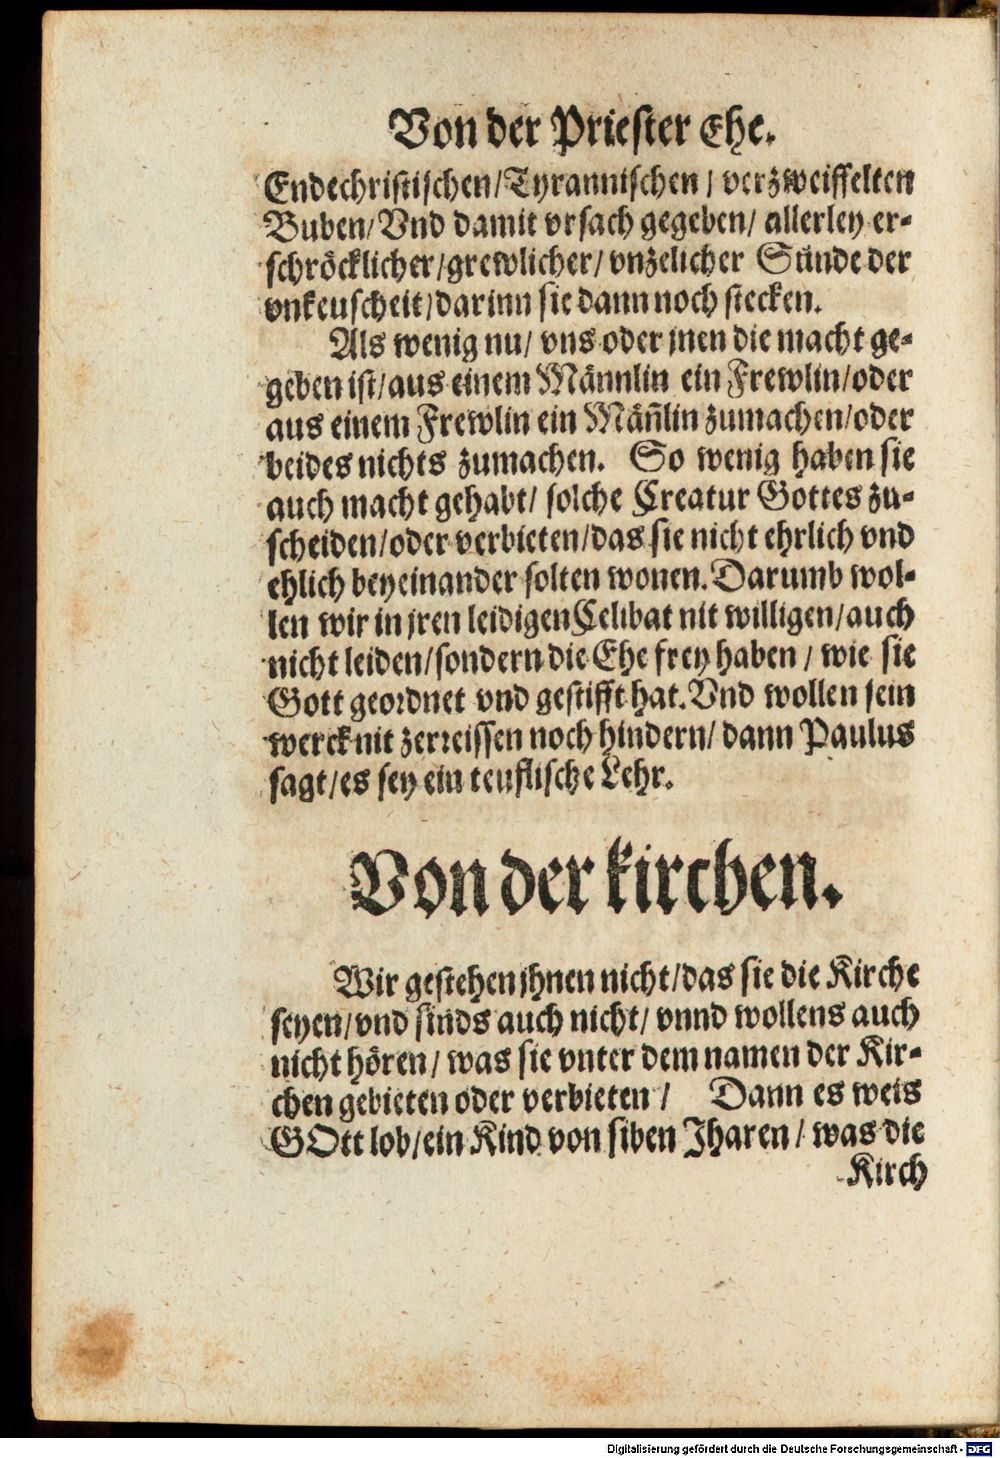 Von der Priester Ehe.
Endechristischen/Tyrannischen/ verzweiffelten
Buben/Vnd damit vrsach gegeben/ allerley er-
schröcklicher/grewlicher/ vnzelicher Sünde der
vnkeuscheit/darinn sie dann noch stecken.
Als wenig nu/ vns oder jnen die macht ge-
geben ist/aus einem Männlin ein Frewlin/oder
aus einem Frewlin ein Mäñlin zumachen/oder
beides nichts zumachen. So wenig haben sie
auch macht gehabt/ solche Creatur Gottes zu-
scheiden/oder verbieten/das sie nicht ehrlich vnd
ehlich beyeinander solten wonen. Darumb wol-
len wir in jren leidigen Celibat nit willigen/auch
nicht leiden/sondern die Ehe frey haben/ wie sie
Gott geordnet vnd gestifft hat. Vnd wollen sein
werck nit zerreissen noch hindern/ dann Paulus
sagt/es sey ein teuflische Lehr.
Von der kirchen.
Wir gestehen jhnen nicht/das sie die Kirche
seyen/vnd sinds auch nicht/ vnnd wollens auch
nicht hören/ was sie vnter dem namen der Kir-
chen gebieten oder verbieten/ Dann es weis
GOtt lob/ein Kind von siben Jharen/ was die
Kirch
Digitalisierung gefördert durch die Deutsche Forschungsgemeinschaft - DFG